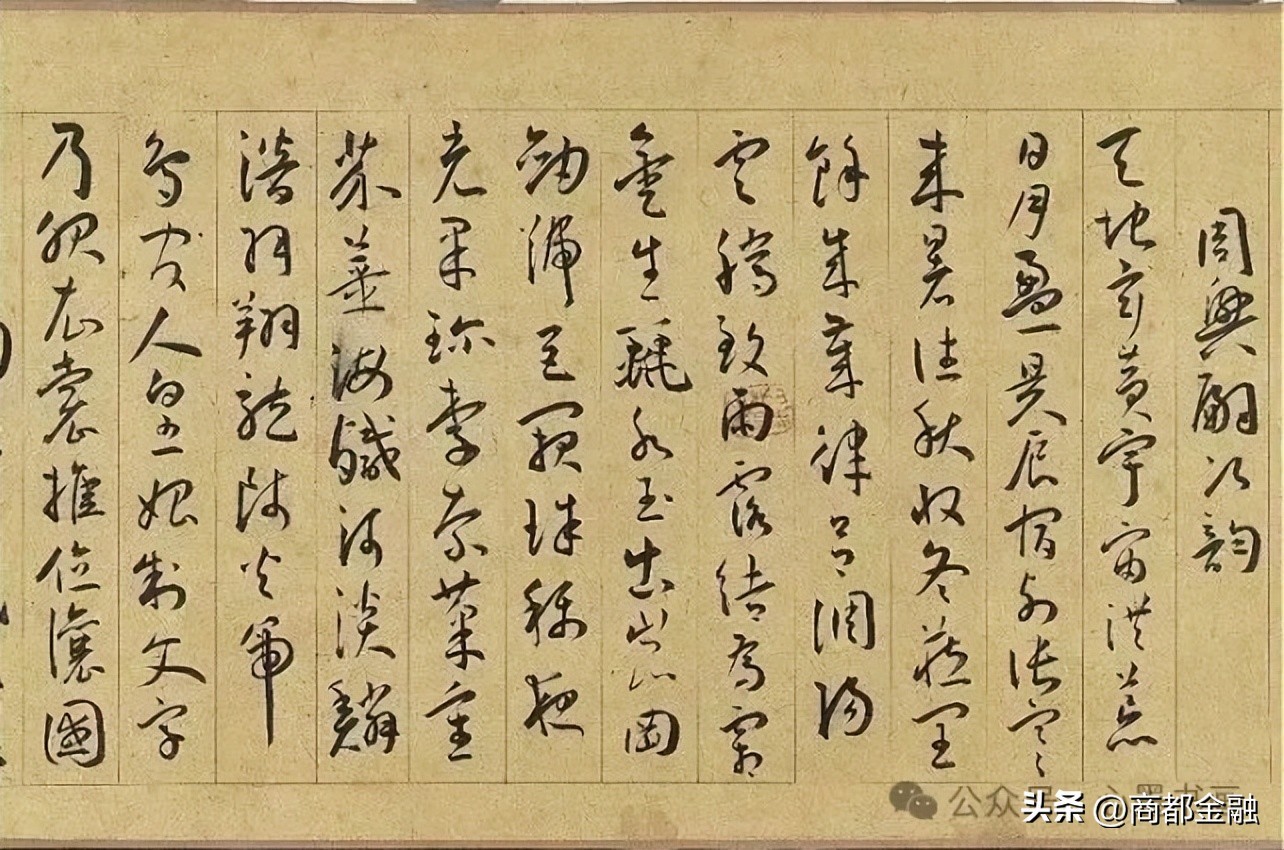 周興嗣次韵
天地玄黃宇宙洪荒
日月盈昃辰宿列張寒
來暑往秋收冬藏閏
餘成歲律呂調陽
雲騰致雨露結爲霜
金生麗水玉出崑岡
劍號巨闕珠稱夜
光果珍李柰菜重
芥薑海鹹河淡鱗
潛羽翔龍師火帝
鳥官人皇始制文字
乃服衣裳推位讓國
公众
头条 @商都金融